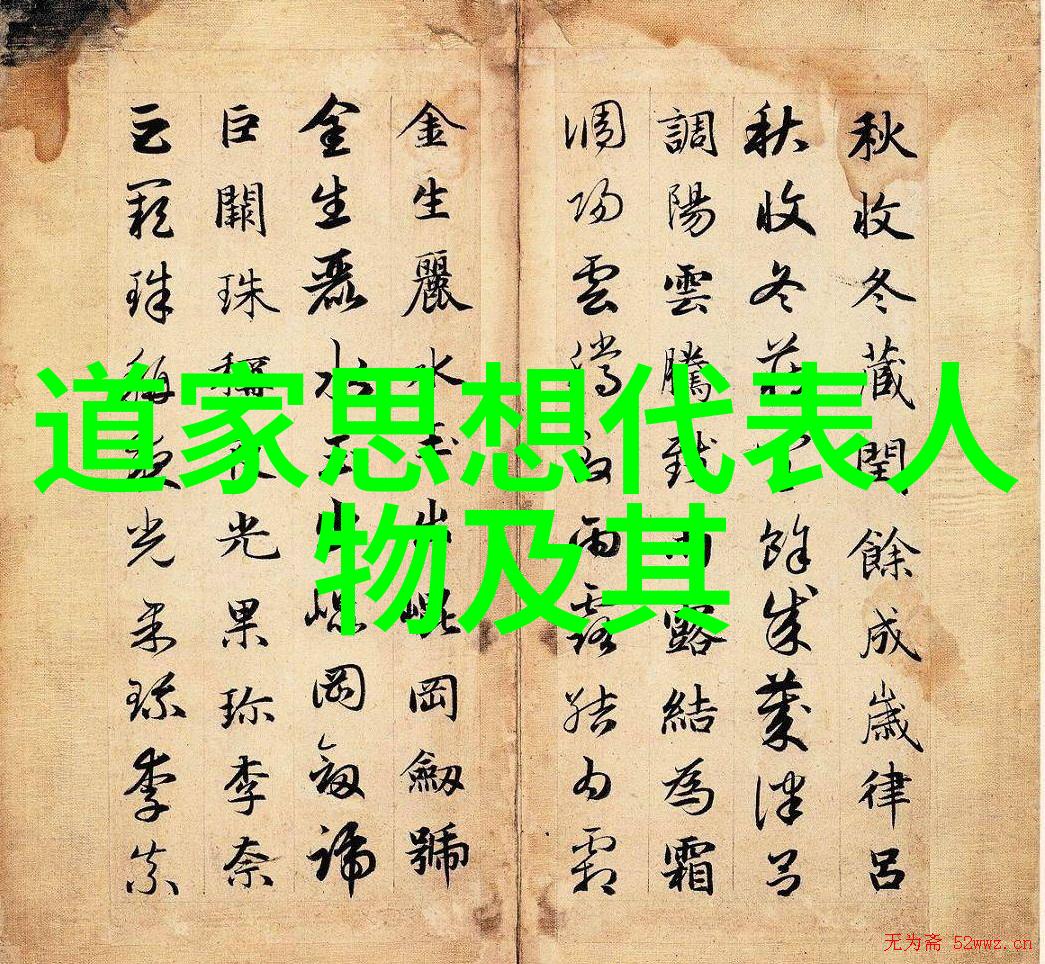 道家思想代表人
物及其
秋收冬藏閏餘成歲律呂
秋收冬藏閏餘成歲律呂
調陽雲騰致雨露結為霜
調陽雲騰致雨露結為霜
金生麗水玉出崐岡劔號
金生麗水玉出崐岡劔號
巨闕珠稱夜光果珍李柰
巨闕珠稱夜光果珍李柰
无为斋 52wwz.cn